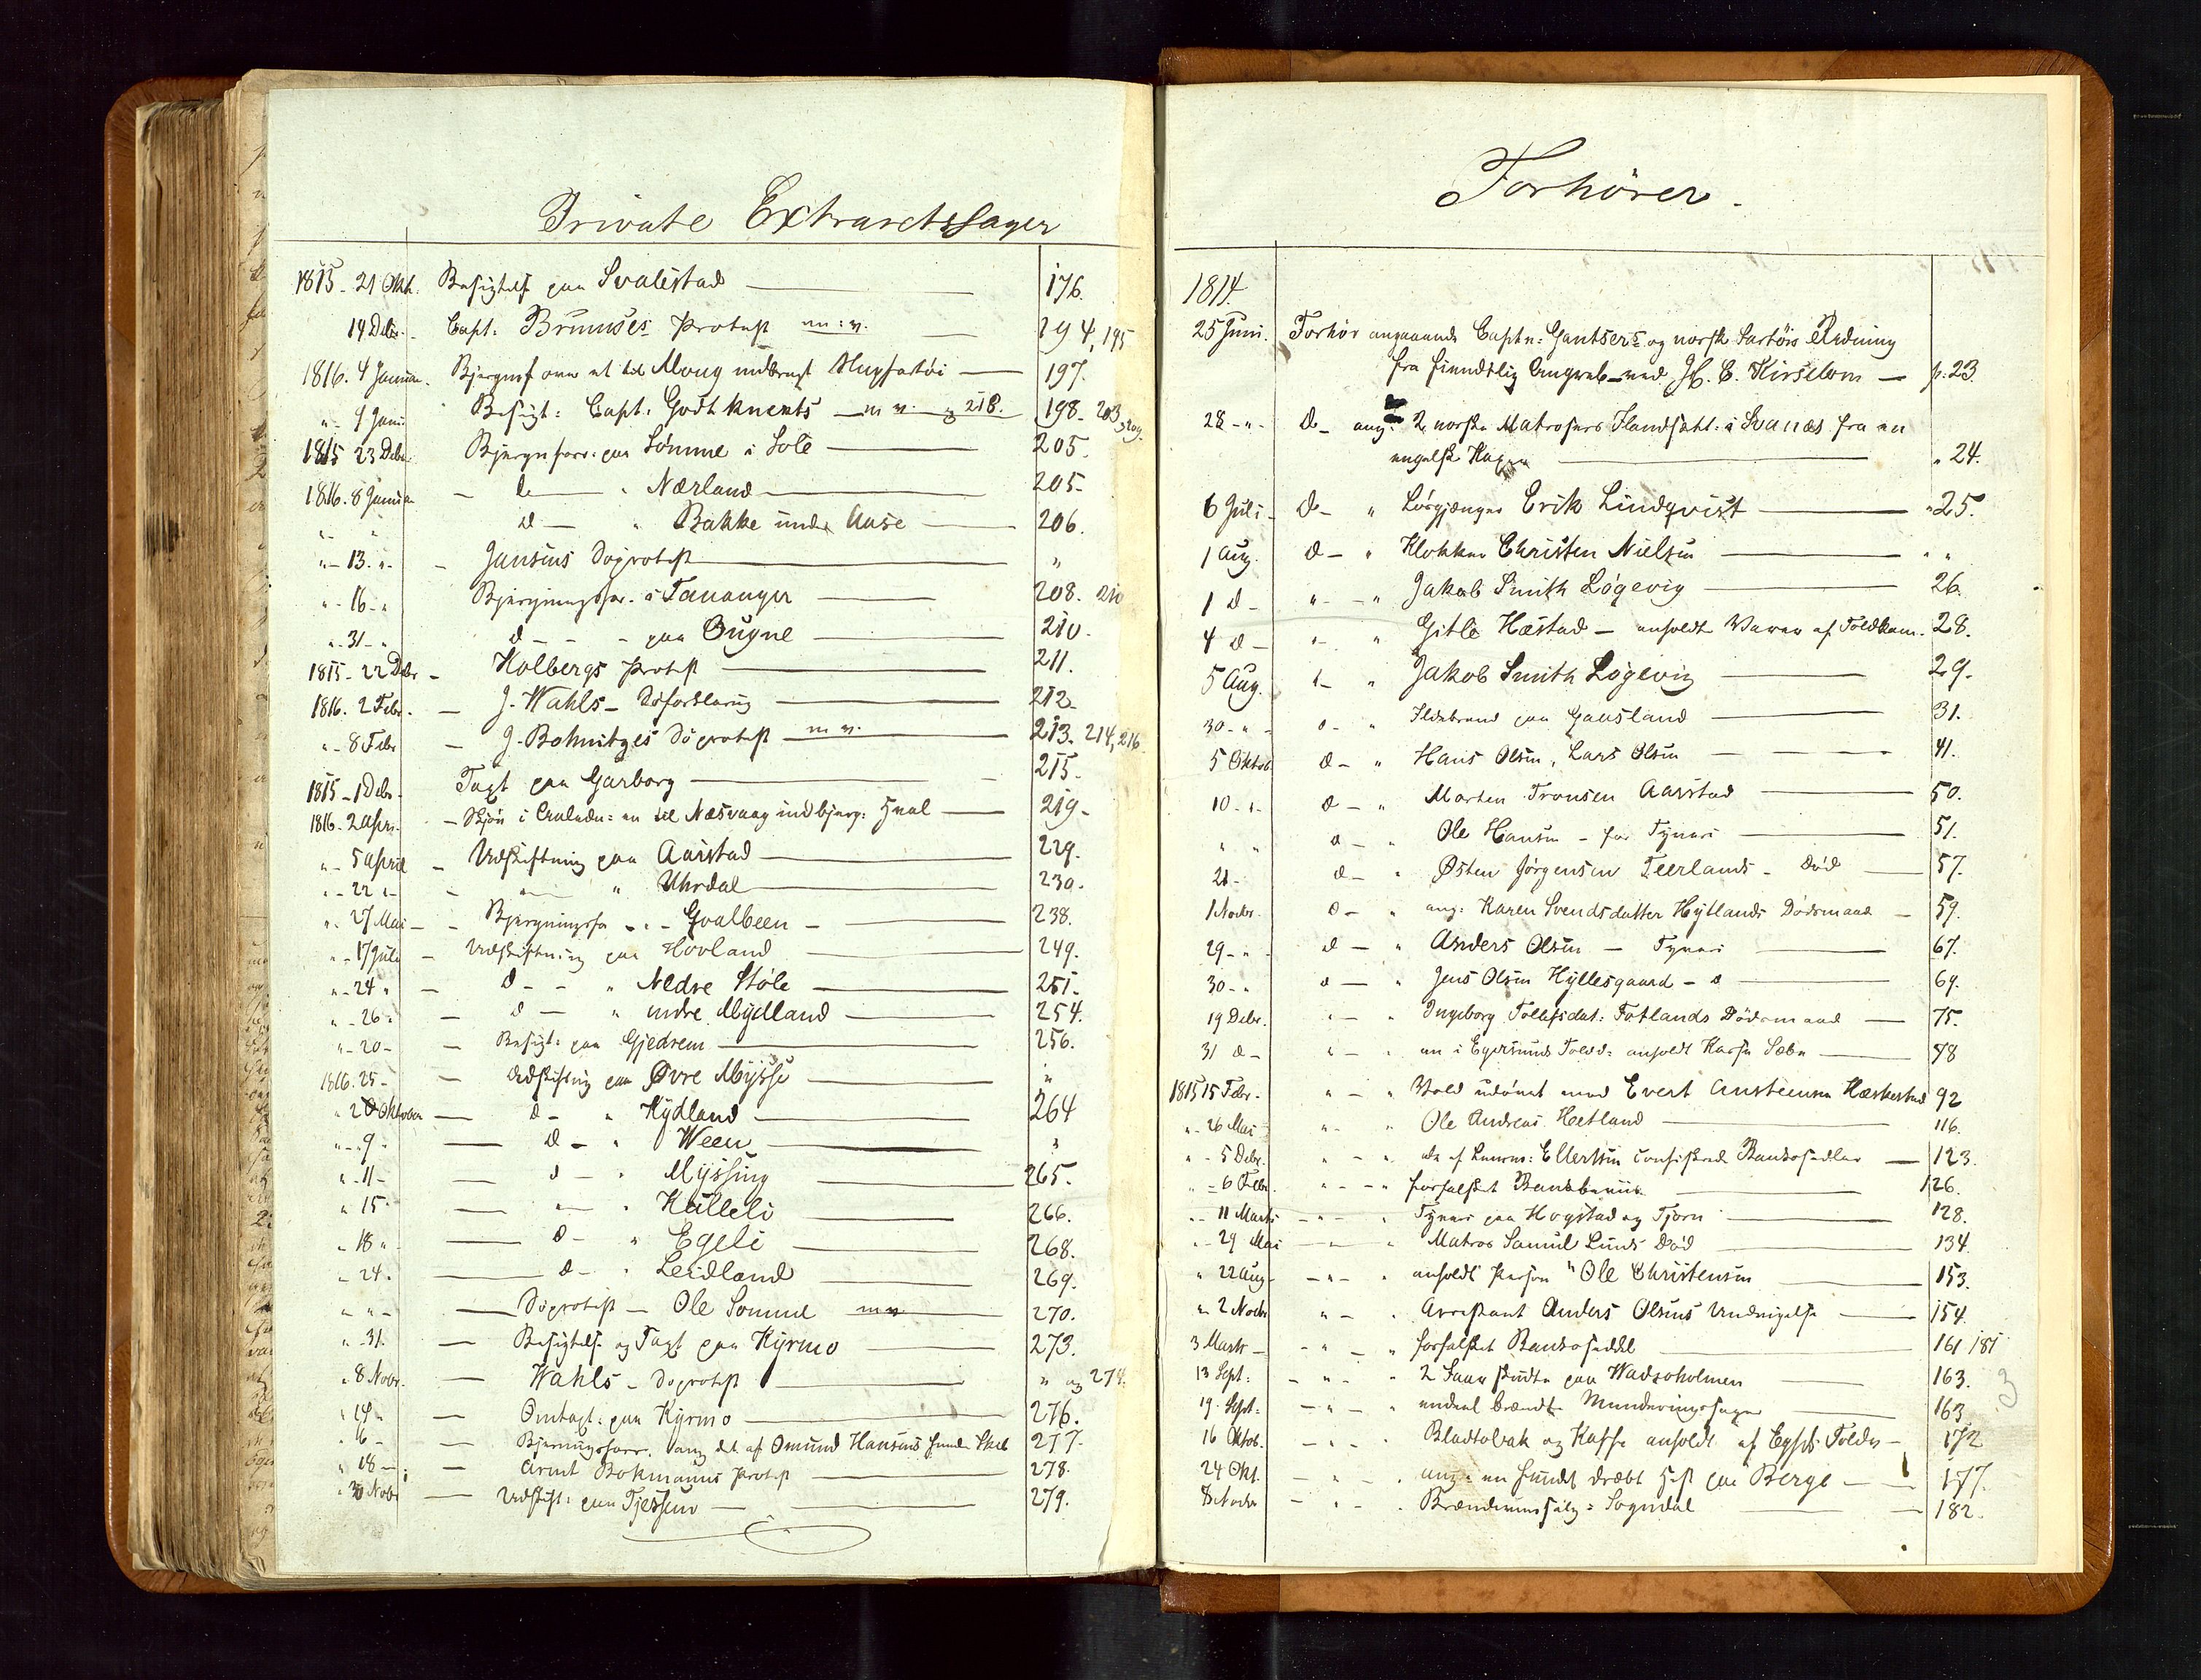 Private Extraretssager
1815. 21 Oktb. Besigtelse paa Svalestad 176.
14 Debr. Capt: Brunses Protest m: v. 194, 195
1816. 4 Januar. Bjergnsf over et til Moug indbragt 197.
" - 9 Janu Besigt: Capt: Godtknechts m v. og 218. 198. 203, 209.
1815 23 Debr Bjergnsforr: paa Sømme i Sole 205.
1816. 8 Januar - d " Nærland 205.
" " d - " Bakke under Aase 206.
" - 13. " - Jansens Søprotest "
" - 16 - " Bjergningsfor. i Tananger 208. 210
" 31 - " d - - - paa Ougne 210.
1815 - 22 Debr - Holbergs Protest 211.
1816. 2 Febr. - J. Wahls - Søforklaring 212.
" - 8 Febr - J. Bohnitzes Søprotest m v. 213. 214, 216
1815 - 1 Debr. Taxt paa Garborg 215.
1816. 2 Apri. - Skjøn i Anledn: en til Næsvaag indbjerg: Hval 219.
" - 5 April - Udskiftning paa Aarstad 229.
" - 22 " - - " - " Uhrdal 230.
" . 27 Mai - - Bjergningsfo - . - Gvalbeen 238.
" - 17 Juli - Udskiftning paa Hovland 249.
" - 24 " - d - - " Nedre Stöle 251.
" - 26 " - d - " indre Mydland 254.
" - 20 - - Besigt: paa Gjedrem 256.
1816. 25 - - Udskiftnig paa Øvre Mysse "
" 2 Oktober - d - " Kydland 264
" - 9 - d - " Ween "
" - 11 - - d - " Myssing 265.
" 15 - - " - " Kulleli 266.
" 18 " - d - " Egeli 268.
" 24. - d - " Leidland 269.
" " - - Søprotest - Ole Somme m v 270.
" - 31. - Besigtelse og Taxt paa Kyrmo 273.
" 8 Nobr. - Wahls - Søprotest " og 274.
" 14 " - Omtaxt: paa Kyrmo 276.
" 6 - - Bjerningsforr. ang det af Omund Hansens fundne Skib 277.
" 18 - - Arent Bokmanns Protest 278.
" 30 Nobr - Udskift: paa Tjessem - 279.
Forhörer.
1814.
25 Juni. Forhör angaaende Captn: Gantsers og norsk Fartöis Redning
fra fiendtlig Angreb ved H. C. Kirselom - p. 23.
28 - " - d - ang: 2 norske Matrosers Ilandsatt: i Svanes fra en
engelsk Kaper " 24.
6 Juli - d - " Løsgjænger Erik Lindqvist " 25.
1 Aug. d - " Klokker Christen Nielsen " "
1 d - " - " Jakob Smith Løgevig 26.
4 d - " - " Gitle Hæstad - anholdt Varer af Toldkam. 28.
5 Aug. " - " Jakob Smith Løgevig 29.
30 - " - d - " Ildebrand paa Gausland 31.
5 Oktob d - " Hans Olsen, Lars Olsen 41.
10 - " - d - " Morten Tronsen Aarstad 50.
" " d - " Ole Hansen - for Tyveri 51.
21 - d - " Østen Jörgensen Teerlands - Död 57.
1 Nobr. d - " ang: Karen Svendsdatter Hytlands Dødsmaade - 59.
29 - " - d - " Anders Olsen - Tyveri 67.
30 - " d - " Jens Olsen Hyllesgaard - d 69.
19 Debr. " - " Ingeborg Tollefsdat: Fotlands Dödsmaade 75.
31 d - " - " en i Egersunds Toldd: anholdt Kasse Sæbe 78
1815 15 Febr. " - " Vold udövet mod Evert Austensen Hæskestad 92
" - 26 Mai " - " Ole Andreas Hetland 116.
" - 5 Debr. " - " de af Lensm: Ellertsen confiskerede Bankosedler 123.
" - 6 Febr. " - - " forfalsket Bankbevis 126.
" - 11 Marts - " - " Tyveri paa Hogstad og Tjorn 128.
" - 29 Mai - " - " Matros Samuel Lunds Död 134.
" 22 Aug - - " - " anholdt Person "Ole Christensen 153.
" 2 Nobr " - " Arrestant Anders Olsens Undvigelse 154.
3 Marts - - " - " forfalsket Bankoseddel 161 181
13 Sept: - " - " 2 Faar skudte paa Wadsoholmen 163.
19. Sept: - " - " endeel brændte Munderingssager 163
16 Oktob. - " - " Bladtobak og Kaffe anholdt af Egsds Tolder - 172
24 Okt. - " - " ang: en fundet dræbt Hest paa Berge 177.
8 Nobr - " - " Brændevinssalg: Sogndal 182.
3